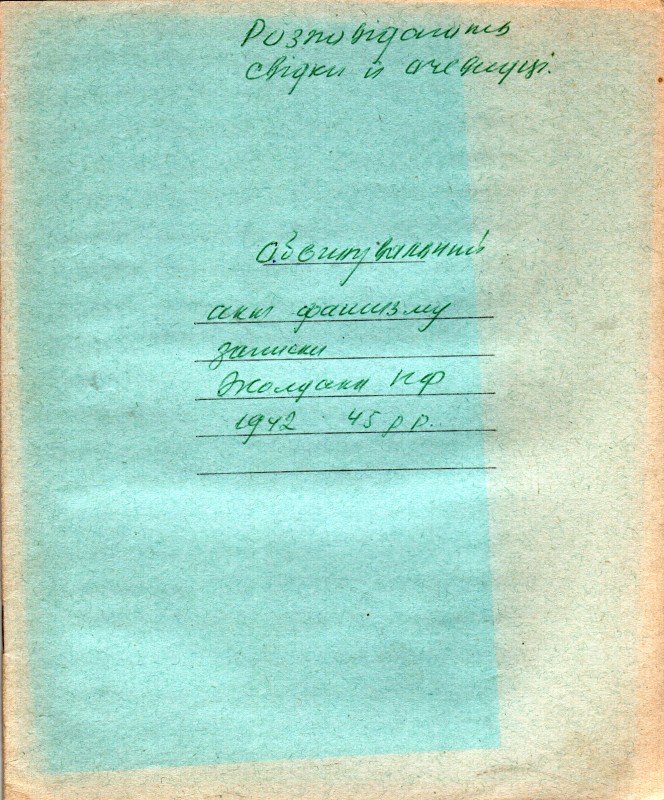 Розповідають
свідки й очевидці.
Обвинувальний
акт фашизму
записки
Жолдака ПФ
1942 45 рр.